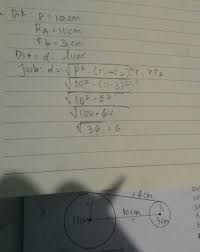 Dik: P = 10 cm
RA = 11 cm
rb = 3 cm
Dit = d. luar
Jwb: d = √P² - (r₁ - r₂)²
√10² - (11-3)²
√10² - 8²
√100 - 64
√36 = 6
6 cm
11cm 10cm 3cm